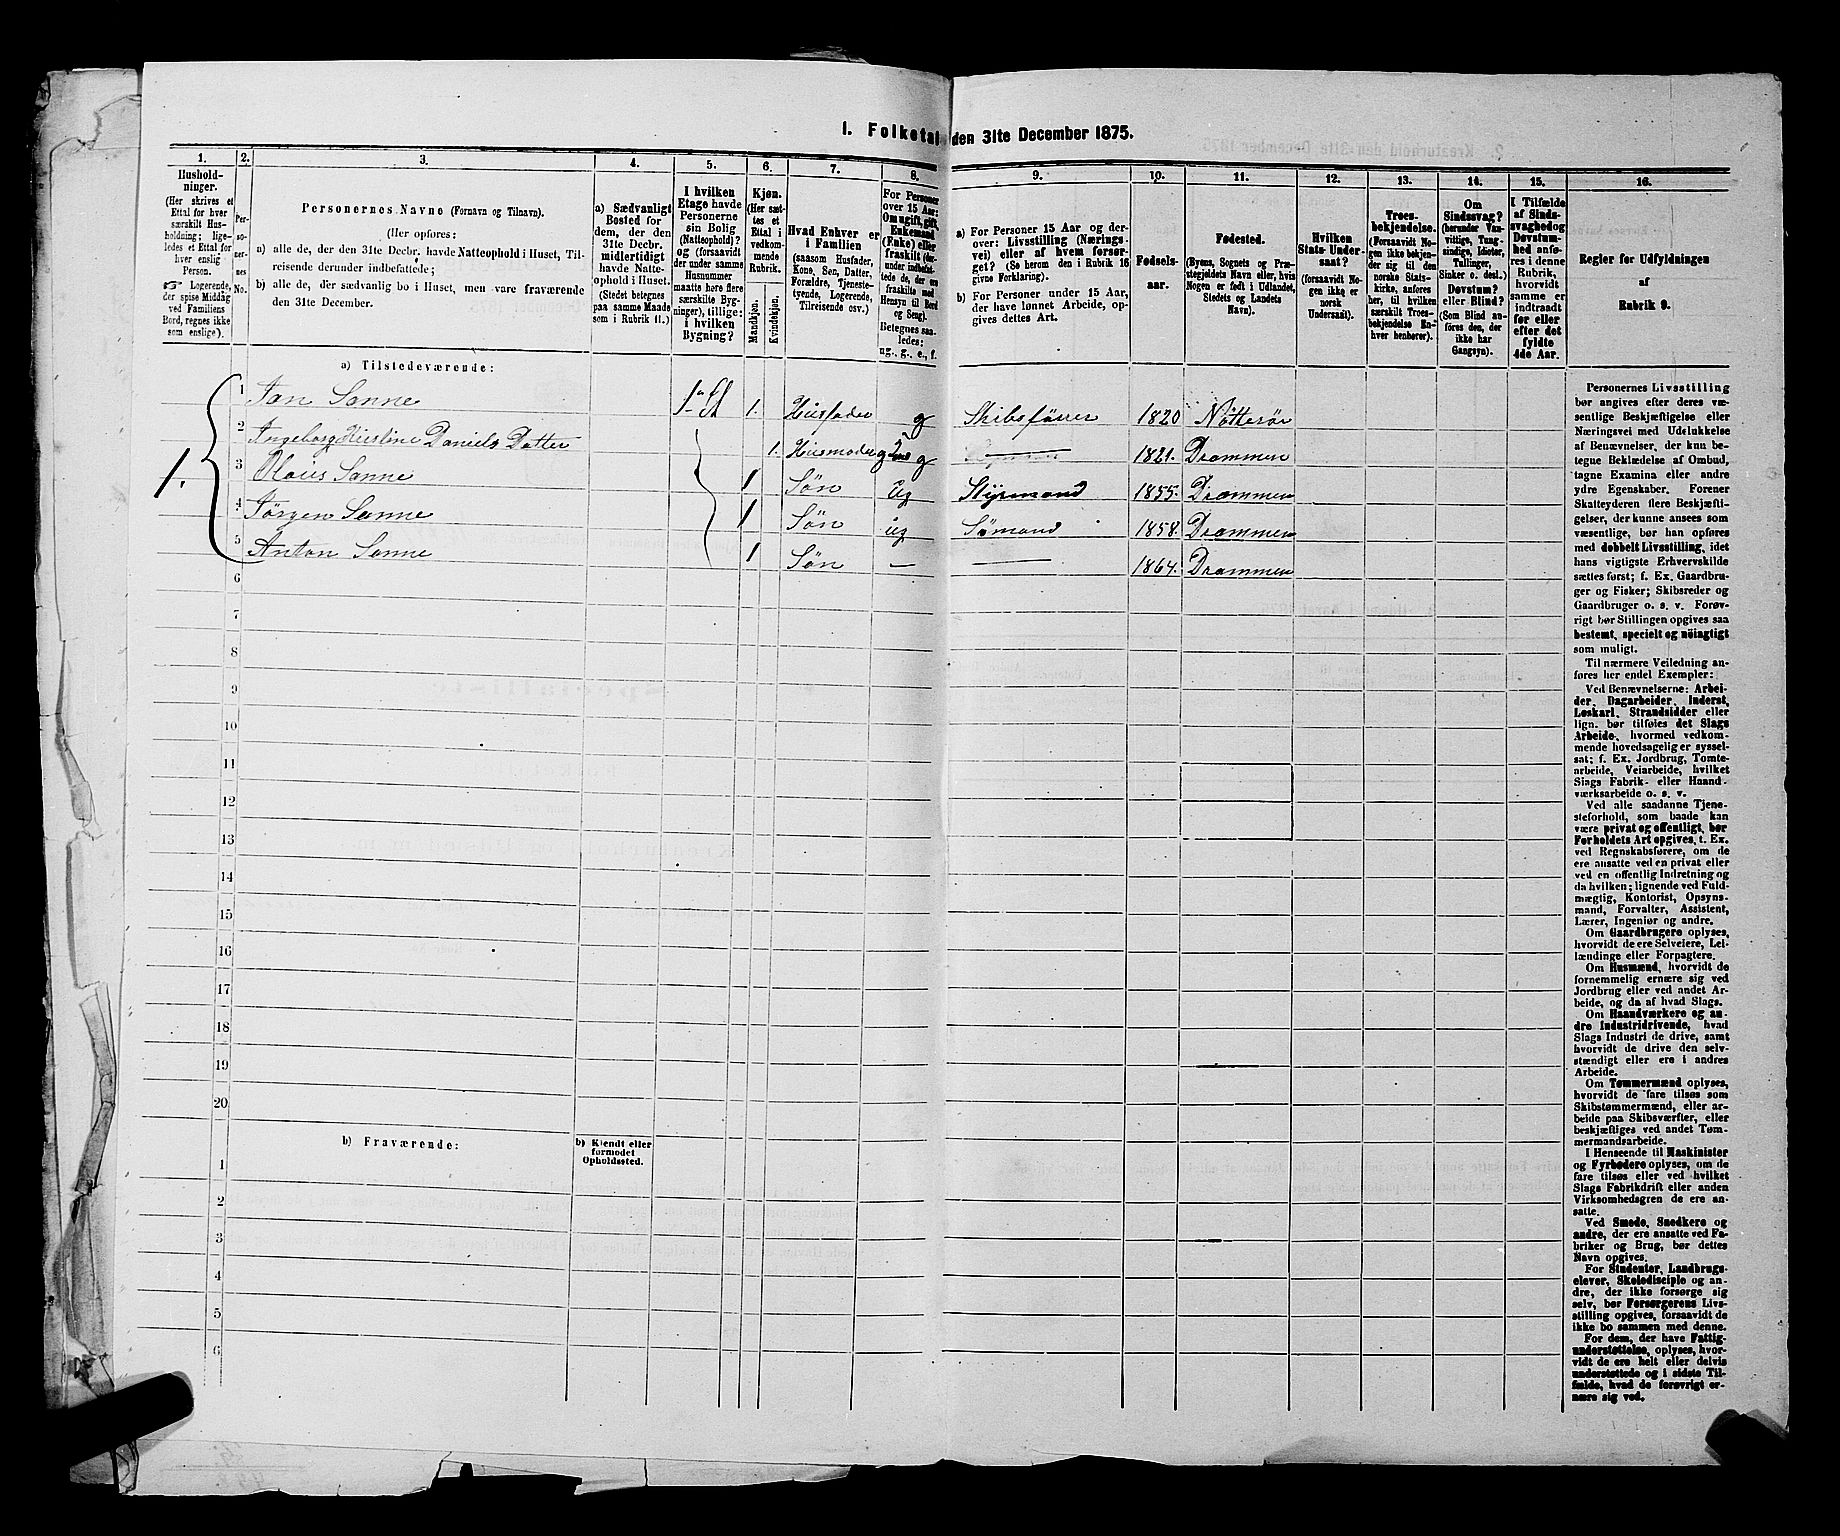 1. Folketal den 31te December 1875.
1. 2. 3. 4. 5. 6. 7. 8. 9. 10. 11. 12. 13. 14. 15. 16.
Husholdninger.
(Her skrives et
Ettal for hver
særskilt Husholdning;
ligeledes et Ettal for
hver enslig
Person.
☞ Logerende,
der spise Middag
ved Familiens
Bord, regnes ikke
som enslige).
Personernes No.
Personernes Navne (Fornavn og Tilnavn).
(Her opføres:
a) alle de, der den 31te Decbr. havde Natteophold i Huset, Tilreisende derunder indbefattede;
b) alle de, der sædvanlig bo i Huset, men vare fraværende
den 31te December.
a) Sædvanligt
Bosted for
dem, der den
31te Decbr.
midlertidigt
havde Natteophold i Huset.
(Stedet betegnes
paa samme Maade
som i Rubrik 11.)
I hvilken
Etage havde
Personerne
sin Bolig
(Natteophold)?
og (forsaavidt
der under samme
Husnummer
maatte høre flere
særskilte Bygninger), tillige:
i hvilken
Bygning?
Kjøn.
(Her sættes et
Ettal i
vedkommende
Rubrik.
Mandkjøn.
Kvindekjøn.
Hvad Enhver er
i Familien
(saasom Husfader,
Kone, Søn, Datter,
Forældre, Tjenestetyende, Logerende,
Tilreisende osv.)
For Personer
over 15 Aar:
Om ugift, gift,
Enkemand
(Enke) eller
fraskilt
Hensyn til Bord
og Seng).
Betegnes saaledes:
ug., g., e., f.
a) For Personer 15 Aar og derover: Livsstilling (Næringsvei) eller af hvem forsørget? (Se herom den i Rubrik 16
givne Forklaring).
b) For Personer under 15 Aar,
der have lønnet Arbeide, opgives dettes Art.
Fødselsaar.
Fødested.
(Byens, Sognets og Præstegjeldets Navn eller, hvis
Nogen er født i Udlandet,
Stedets og Landets
Navn).
Hvilken
Stats Undersaat?
(forsaavidt Nogen ikke er
norsk
Undersaat).
Troesbekjendelse.
(Forsaavidt Nogen ikke bekjender sig til den
norske Statskirke, anføres
her, til hvilken
særskilt Troesbekjendelse Enhver henhører).
Om
Sindssvag?
(herunder Vanvittige, Tungsindige, Idioter,
Tullinger,
Sinker o. desl.)
Døvstum?
eller Blind?
(Som Blind anføres den, der
ikke har
Gangsyn).
I Tilfælde
af Sindssvaghed og
Døvstumhed anføres i denne
Rubrik,
hvorvidt
samme er
indtraadt
før eller
efter det
fyldte
4de Aar.
Regler for Udfyldningen
af
Rubrik 9.
a) Tilstedeværende:
1. 1 Jan Sanne 1ste St 1. Husfader g Skibsfører 1820 Nötterör
2 Ingeborg Kirstine Daniels Datter 1. Husmoder g 1821. Drammen
3 Olaus Sanne 1 Søn ug Styrmand 1855. Drammen
4 Jörgen Sanne 1 Søn ug Sømand 1858. Drammen
5 Anton Sanne 1 Søn — — 1864. Drammen
6
7
8
9
10
11
12
13
14
15
16
17
18
19
20
b) Fraværende:
b) Kjendt eller
formodet
Opholdssted.
1
2
3
4
5
6
Personernes Livsstilling
bør angives efter deres væsentlige Beskjæftigelse eller
Næringsvei med Udelukkelse
af Benævnelser, der kun betegne Beklædelse af Ombud,
tagne Examina eller andre
ydre Egenskaber. Forener
Skatteyderen flere Beskjæftigelser, der kunne ansees som
væsentlige, bør han opføres
med dobbelt Livsstilling, idet
hans vigtigste Erhvervskilde
sættes først; f. Ex. Gaardbruger og Fisker; Skibsreder og
Gaardbruger o. s. v. Forøvrigt bør Stillingen opgives saa
bestemt, specielt og nøiagtigt
som muligt.
Til nærmere Veiledning anføres her endel Exempler:
Ved Benævnelserne: Arbeider, Dagarbeider, Inderst,
Løskarl, Strandsidder eller
lign. bør tilføies det Slags
Arbeide, hvormed vedkommende hovedsagelig er sysselsat; f. Ex. Jordbrug, Tomtearbeide, Veiarbeide, hvilket
Slags Fabrik- eller Haandværksarbeide o. s. v.
Ved alle saadanne Tjenesteforhold, som baade kan
være privat og offentligt, bør
Forholdets Art opgives, t. Ex.
ved Regnskabsførere, om de
ere ansatte ved en privat eller
ved en offentlig Indretning og
da hvilken; lignende ved Fuldmægtig, Kontorist, Opsynsmand, Forvalter, Assistent,
Lærer, Ingeniør og andre.
Om Gaardbrugere oplyses,
hvorvidt de ere Selveiere, Leilændinge eller Forpagtere.
Om Husmænd, hvorvidt de
fornemmelig ernære sig ved
Jordbrug eller ved andet Arbeide, og da af hvad Slags.
Om Haandværkere og andre Industridrivende, hvad
Slags Industri de drive, samt
hvorvidt de drive den selvstændigt eller ere i andres
Arbeide.
Om Tømmermænd oplyses,
hvorvidt de fare tilsøs som
Skibstømmermænd, eller arbeide paa Skibsværfter, eller
beskjæftiges ved andet Tømmermandsarbeide.
I Henseende til Maskinister
og Fyrbødere oplyses, om de
fare tilsøs eller ved hvilket
Slags Fabrikdrift eller anden
Virksomhedsgren de ere ansatte.
Ved Smede, Snedkere og
andre, der ere ansatte ved Fabriker og Brug, bør dettes
Navn opgives.
For Studenter, Landbrugselever, Skoledisciple og andre, der ikke forsørge sig
selv, bør Forsørgerens Livsstilling opgives, forsaavidt de
ikke bo sammen med denne.
For dem, der have Fattigunderstøttelse, oplyses, hvorvidt de ere helt eller delvis
understøttede og i sidste Tilfælde, hvad de forøvrigt ernære sig ved.